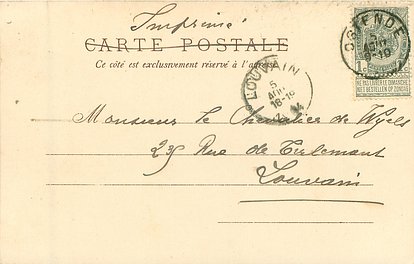 Imprimé
CARTE POSTALE
Ce côté est exclusivement réservé à l'adresse
OSTENDE
5
AOUT
9-10
NE PAS LIVRER LE DIMANCHE
NIET BESTELLEN OP ZONDAG
LOUVAIN
5
AOUT
18-19
Monsieur le Chevalier de Wyels
23 Rue de Tirlemont
Louvain